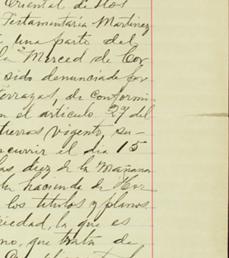 Oriental de los
Testamentaria Martinez
una parte del
la "Merced de Cor
sido denunciada por
Terrazas, de conformi
n el articulo 29 del
tierras vigente, su-
ocurrir el dia 15
las diez de la mañana
la hacienda de Cor
los titulos y planos
iedad, la que es
no, que trata de